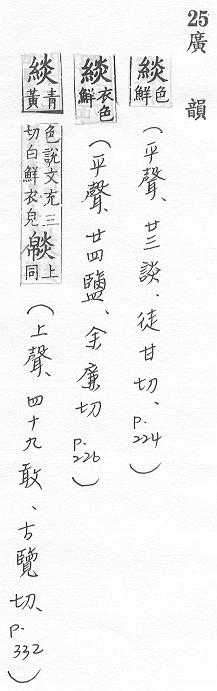 25 廣韻
緂色鮮（平聲、廿三談、徒甘切、p.224）
緂衣色鮮（平聲、廿四鹽、余廉切 p.226）
緂青黃色說文充三切白鮮衣皃 上同（上聲、四十九敢、古覽切、p.332）